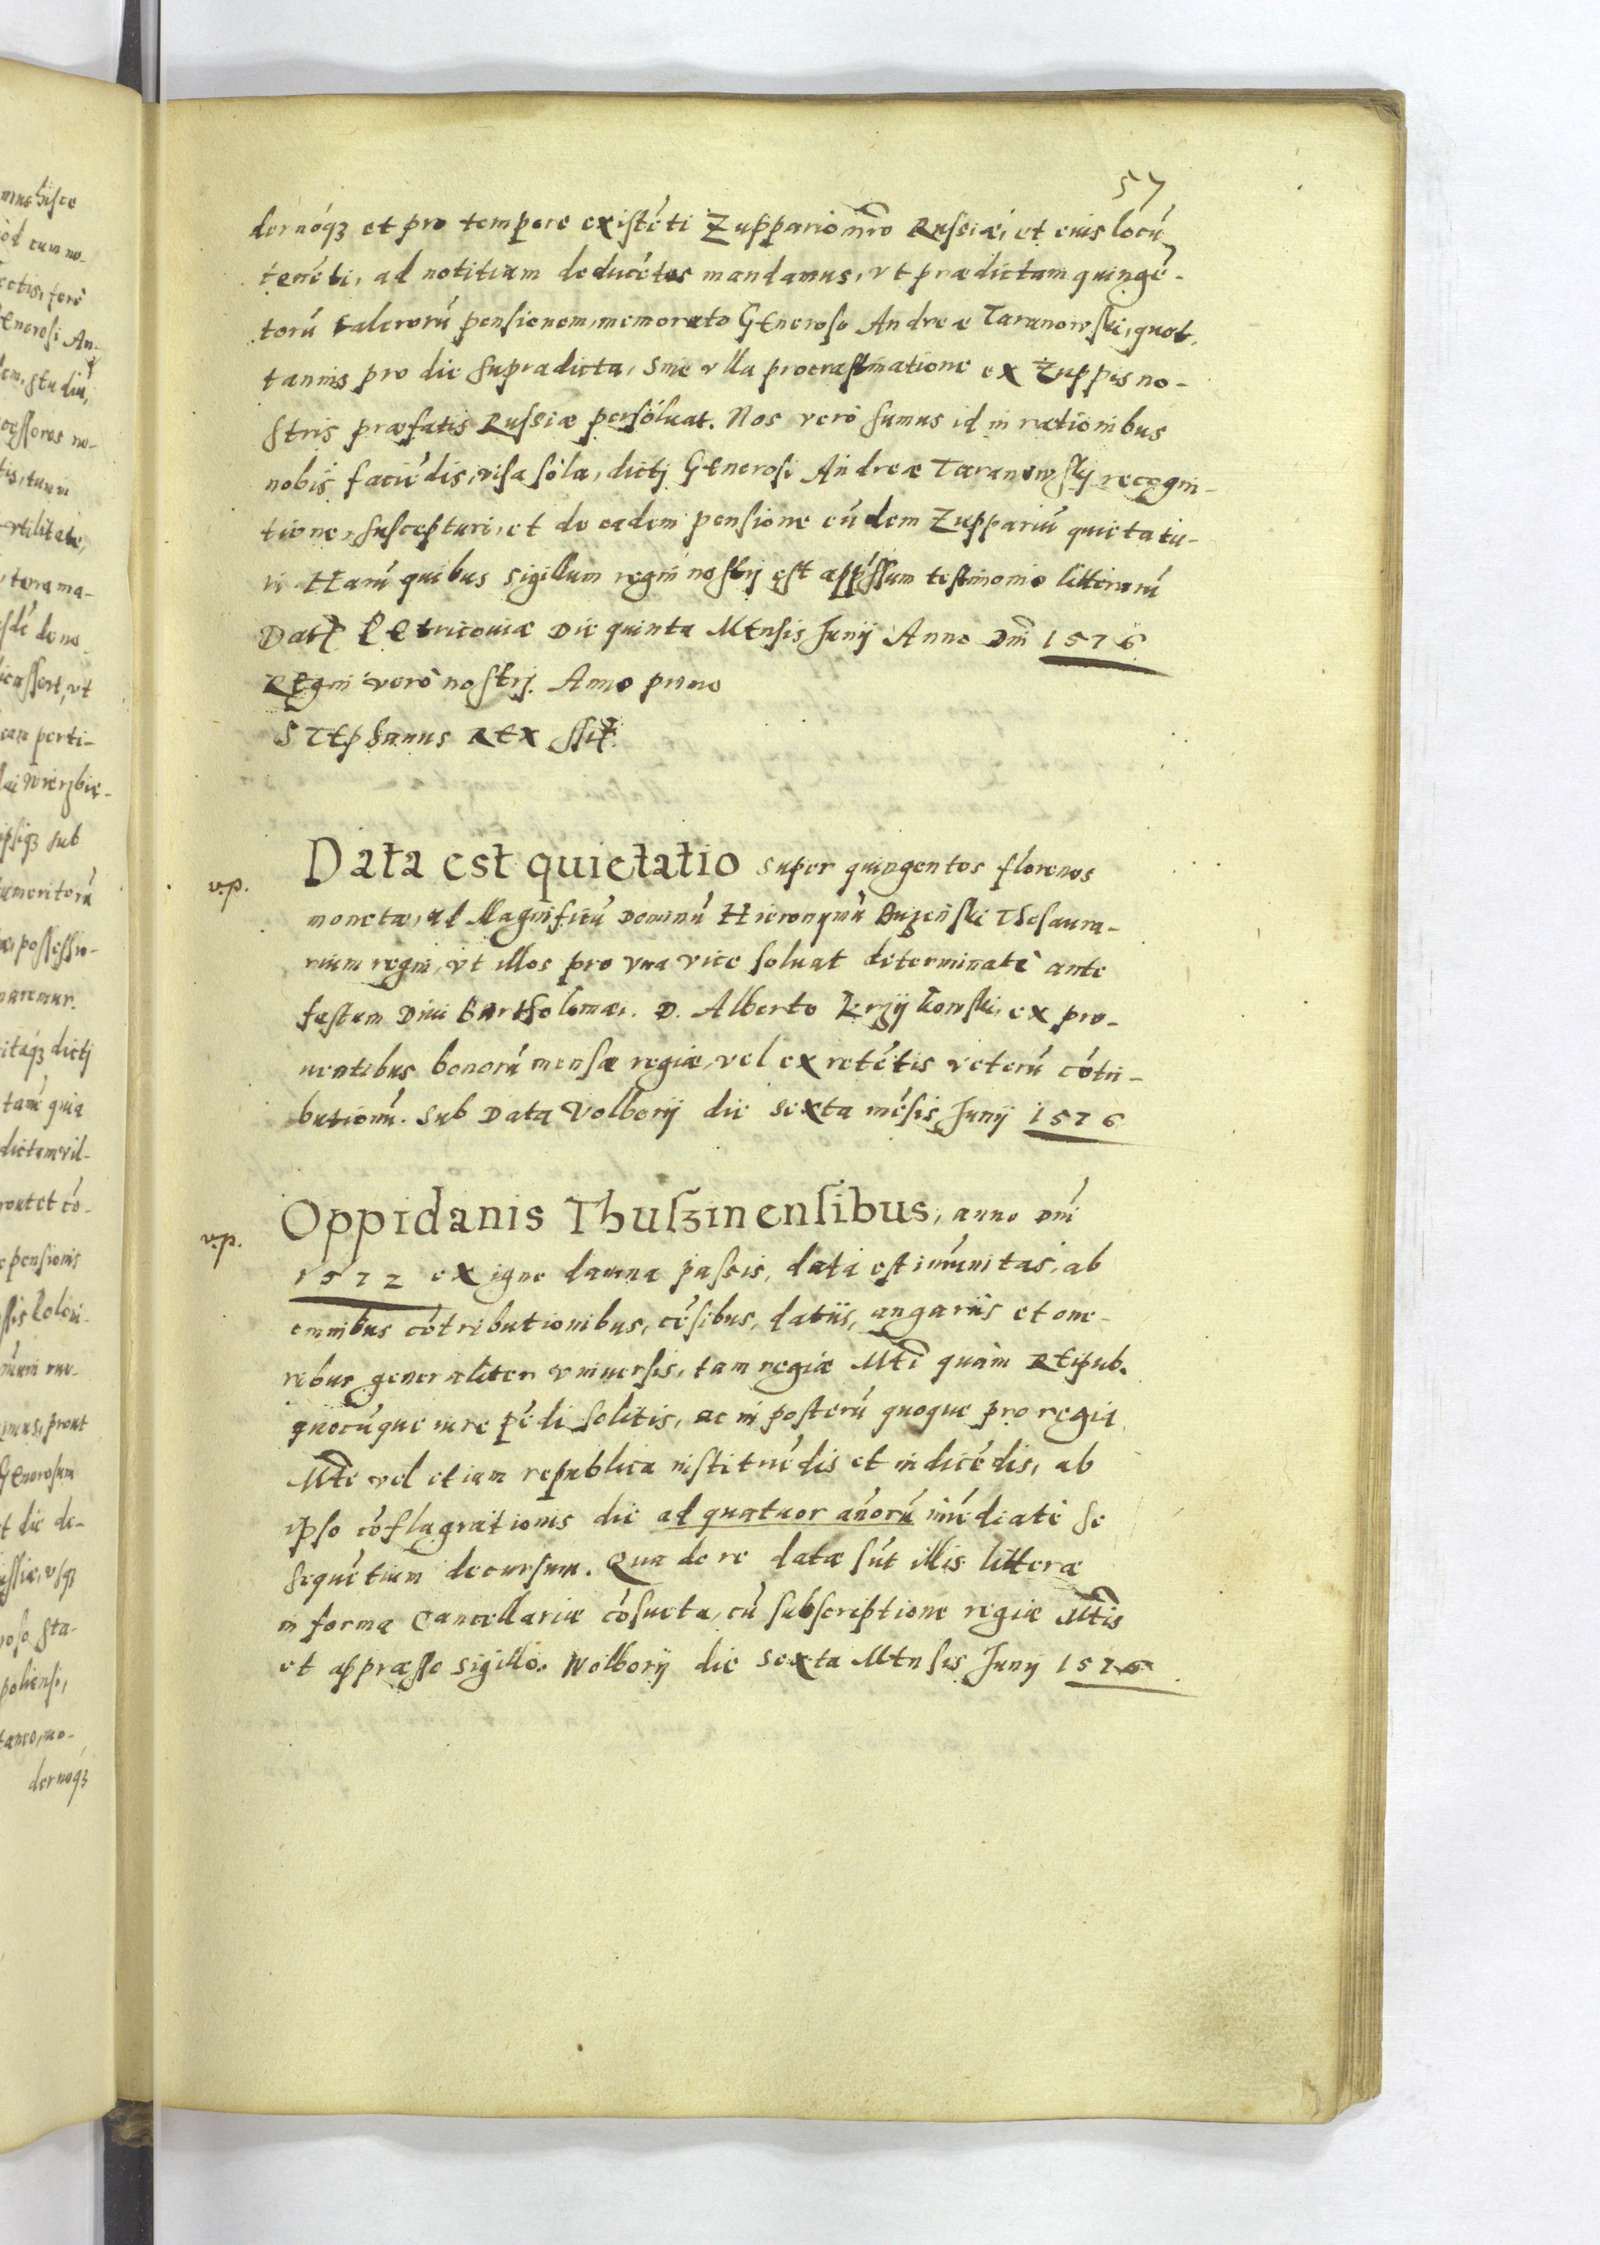 57
dernóq3 et pro tempore existéti Zuppario nr̃o Russiæ, et eius locú
tenéti, ad notitiam deducétes mandamus, vt prædictam quingé-
torú talerorú pensionem, memorato Generoso Andreæ Taranowski, quot
tannis pro die supradicta, sine vlla procrastinatione ex Zuppis no-
stris præfatis Russiæ persóluat. Nos verò sumus id in rationibus
nobis faciédis, visa sóla, dictj Generosi Andreæ Taranowskij recogni-
tione, suscepturi, et de eadem pensione eúdem Zuppariú quietatu-
ri. Harú quibus sigillum regni nostrj est appssum testimonio litterarú
Dat Petricouiæ Die quinta Mensis Junij Anno Dnĩ 1576
Regni verò nostrj. Anno primo
STEphanus REX ssit.
v.p.
Data est quietatio super quingentos florenos
monetæ, ad Magnificú Dominú Hieronymú Buzeński Thesaura-
rium regni, vt illos pro vna vice soluat determinatè ante
festum Diui Bartholomæi. D. Alberto Krzijkowski, ex pro-
uentibus bonorú mensæ regiæ, vel ex retétis veterú cótri-
butionú. Sub Data Volborij die sexta mésis Junij 1576
v.p.
Oppidanis Thuszinensibus, anno Dnĩ
1572 ex igne damna passis, data est imúnitas, ab
omnibus cótributionibus, césibus, datiis, angariis et one-
ribus generaliter vniuersis, tam regiæ Mti quàm REipub.
quocúque iure pédi solitis, ac in posterú quoque pro regia
Mte vel etiam republica instituédis et indicédis, ab
ipso cóflagrationis die ad quatuor añorú imédiatè se
sequétium decursum. Qua de re datæ sút illis litteræ
in forma Cancellariæ cósueta, cú subscriptione regiæ Mtis
et appræsso sigillo. Wolborij die sexta MEnsis Junij 1576